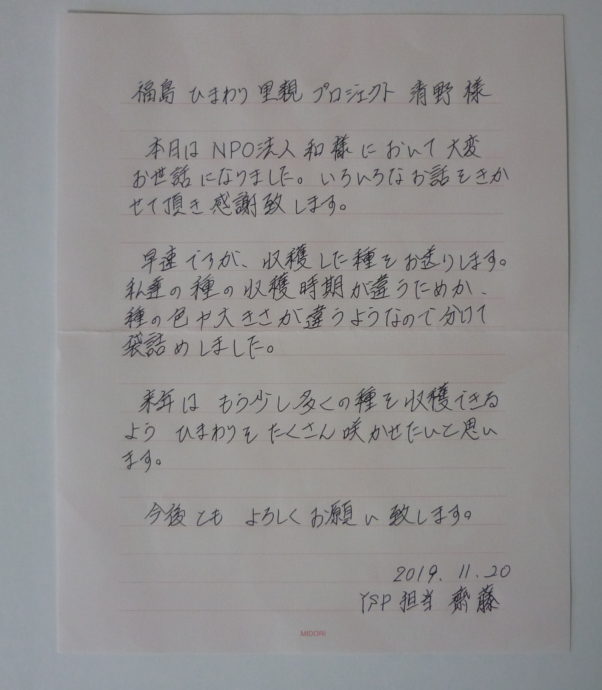 福島 ひまわり 里親 プロジェクト 清野 様
本日は NPO法人 和 様 において 大変
お世話 になりました。 いろいろな お話 をきか
せて 頂き 感謝致 します。
早速 ですが、 収穫 した 種を お送り します。
私達の 種の 収穫時期が 違うためか、
種の 色や 大きさが 違うようなので 分けて
袋詰め しました。
来年は もう少し 多くの 種を 収穫できる
よう ひまわりを たくさん 咲かせたいと 思い
ます。
今後とも よろしく お願い 致します。
2019. 11. 20
YSP 担当 齊藤
MIDORI